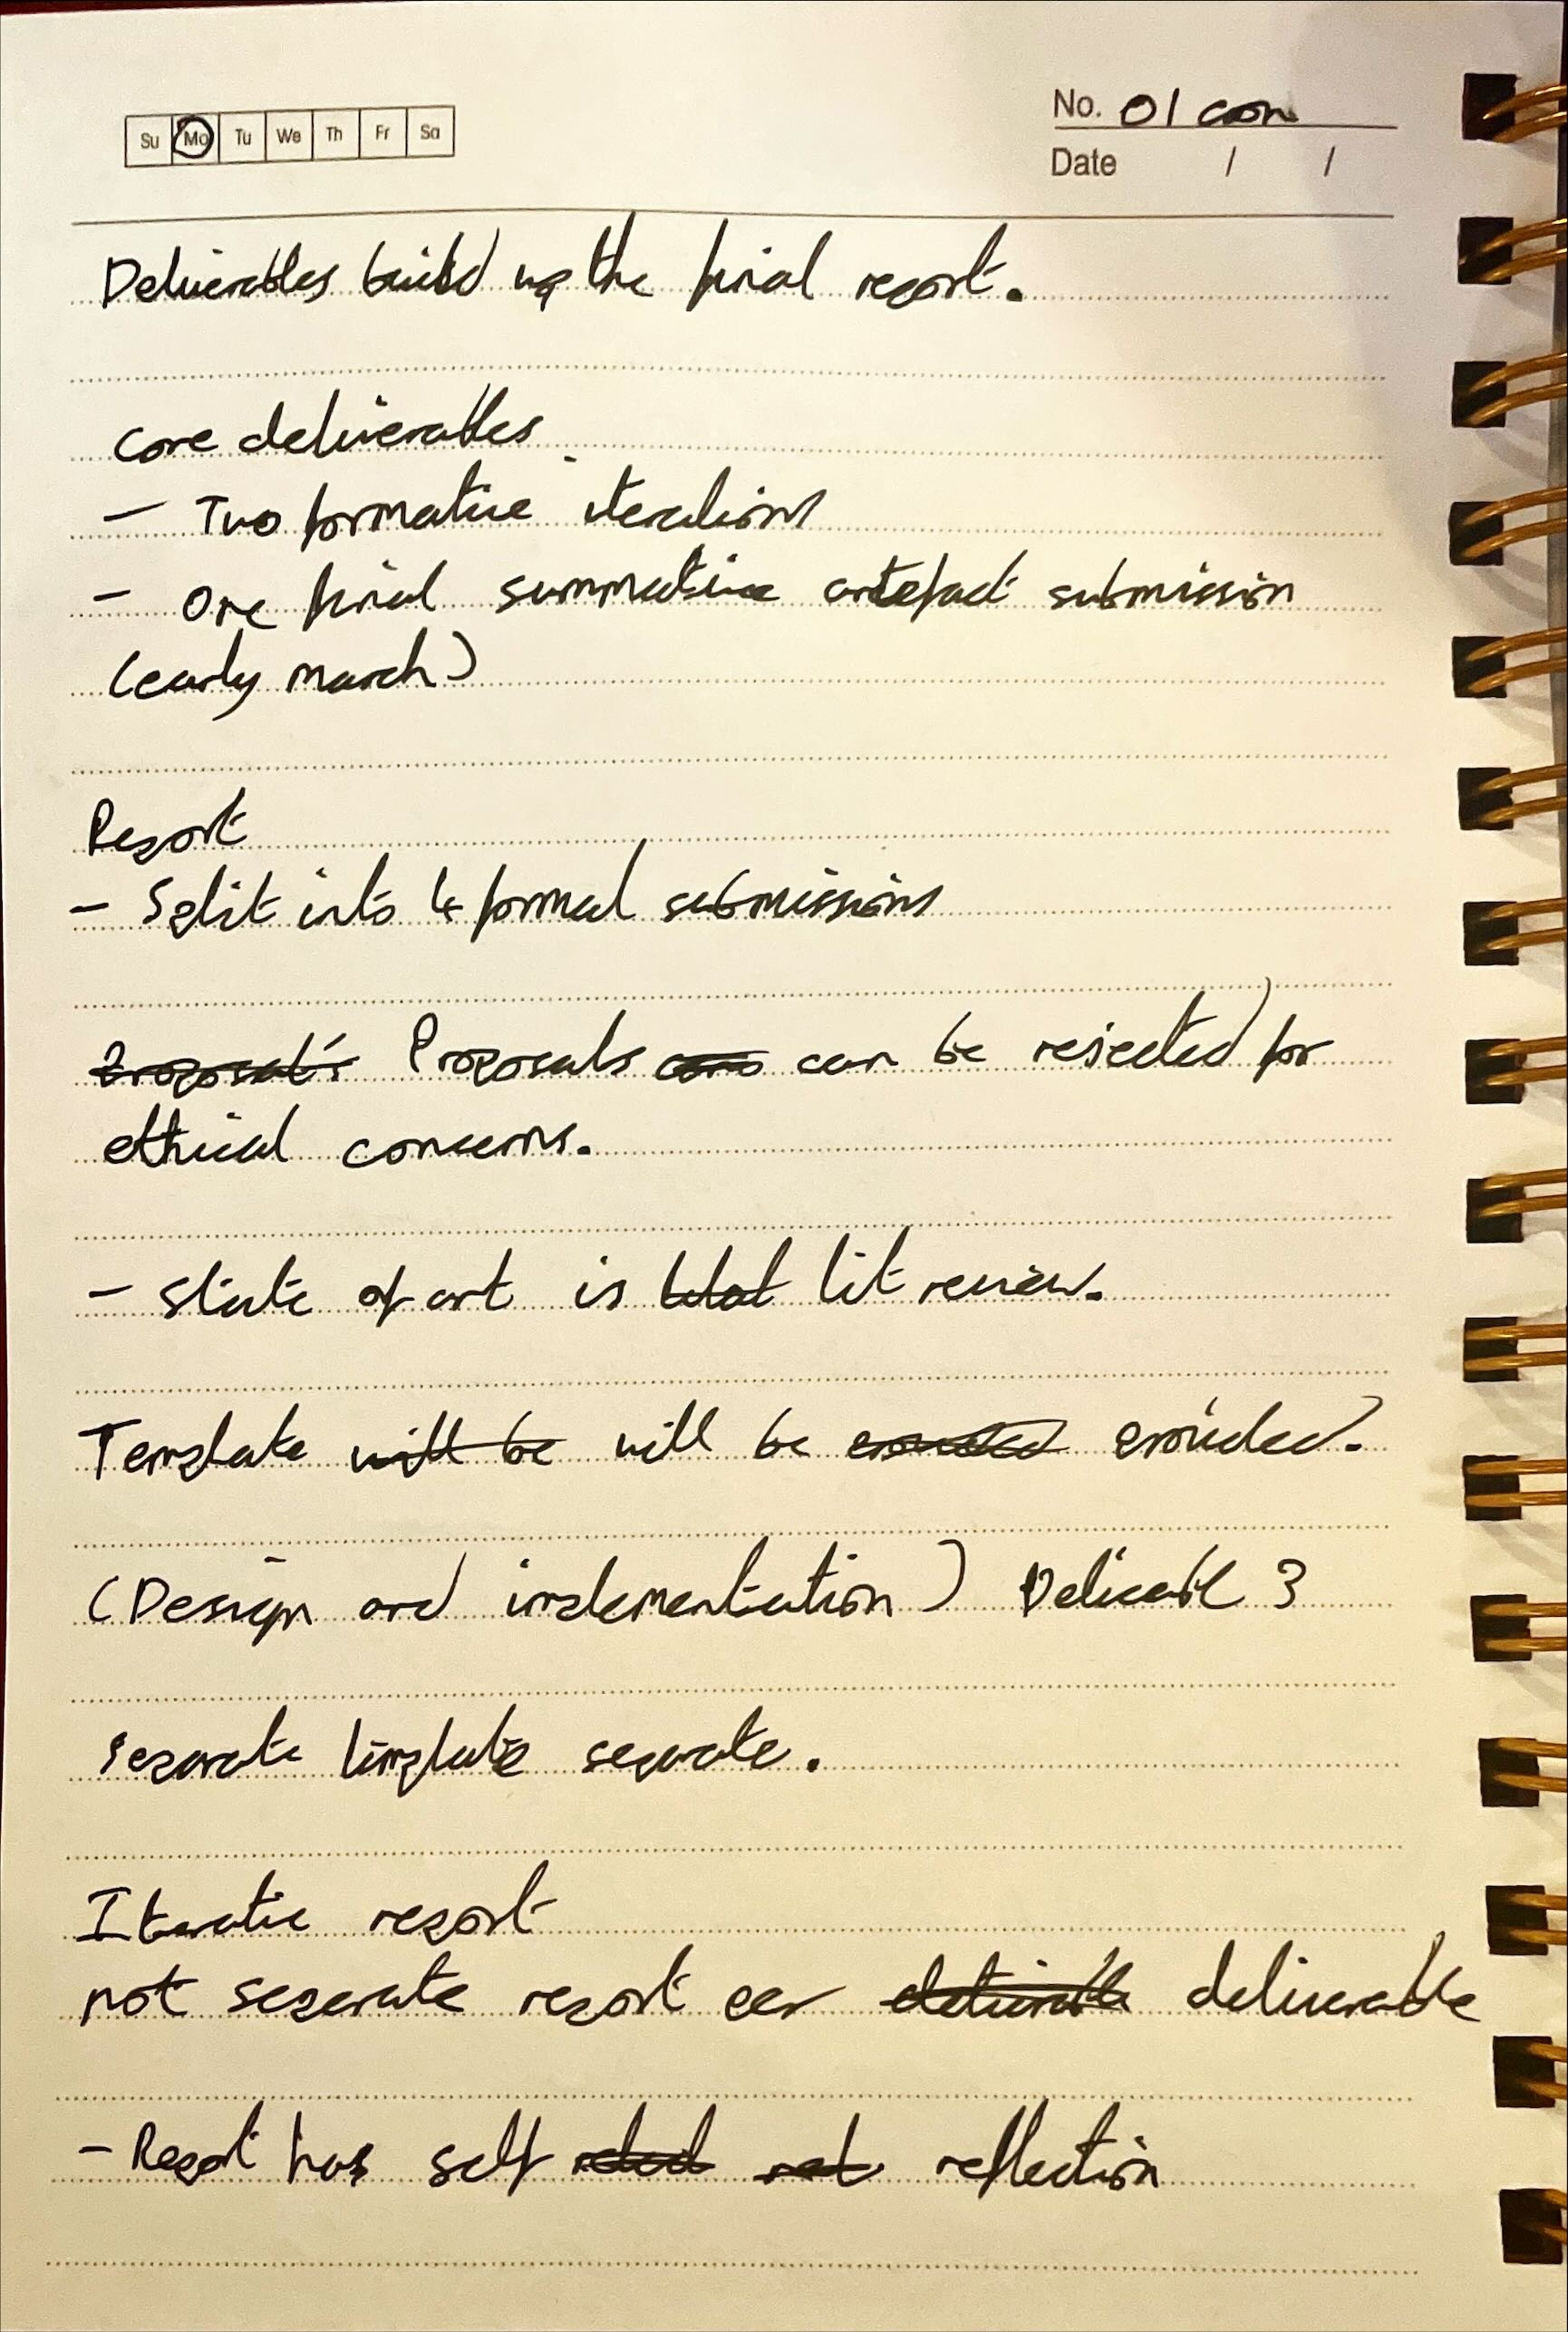 Su Mo Tu We Th Fr Sa
No. 01 con
Date / /
Deliverables build up the final report.
core deliverables
- Two formative iterations
- One final summative artefact submission
(early march)
Report
- Split into 4 formal submissions
Proposals can be rejected for
ethical concerns.
- State of art is lit review.
Template will be will be provided.
(Design and implementation) 3
separate template separate.
Iterative report
not seperate report per deliverable deliverable
- Report has self reflection